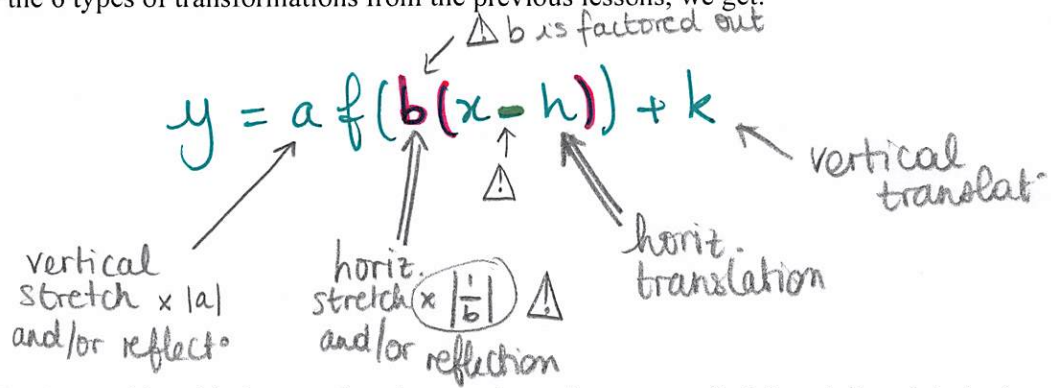 the 6 types of transformations from the previous lessons, we get:
⚠ b is factored out
y = a f(b(x - h)) + k
⚠
vertical
translat
vertical
stretch x |a|
and/or reflect
horiz.
stretch x |1/b| ⚠
and/or reflection
horiz.
translation